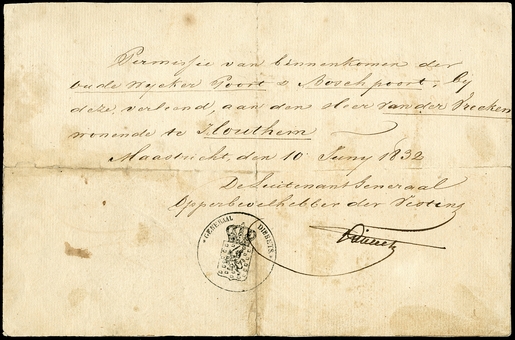 Permissie van binnenkomen der
oude Wycker Poort & Bosch poort, by
deze verleend, aan den Heer van der Vrecken
wonende te Houthem
Maastricht, den 10 Juny 1832
De Luitenant Generaal
Opperbevelhebber der Vesting
GENERAAL DIBBETS